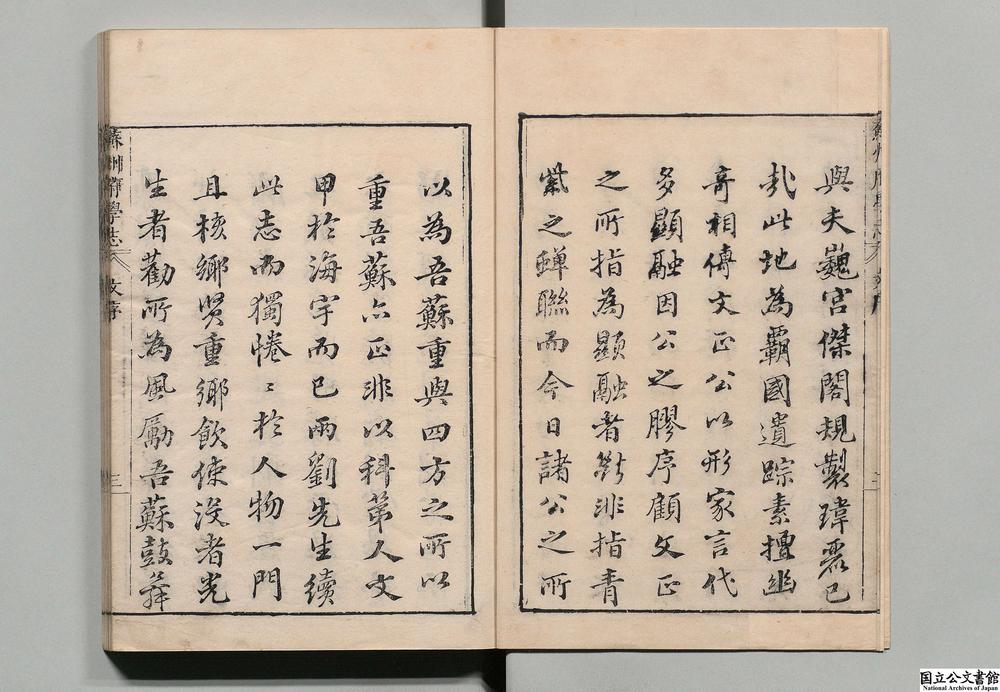 與夫巍宮傑閣規製瑋麗已
哉此地為覇國遺踪素擅幽
奇相傳文正公以形家言代
多顯融因公之膠序顧文正
之所指為顯融者斷非指青
紫之蟬聯而今日諸公之所
以為吾蘇重與四方之所以
重吾蘇亦正非以科第人文
甲於海宇而已兩劉先生續
此志而獨惓〻於人物一門
且核鄉贤重鄉飲使没者光
生者勸所為風厲吾蘇鼓舞
蘇州府學志
三
国立公文書館
National Archives of Japan